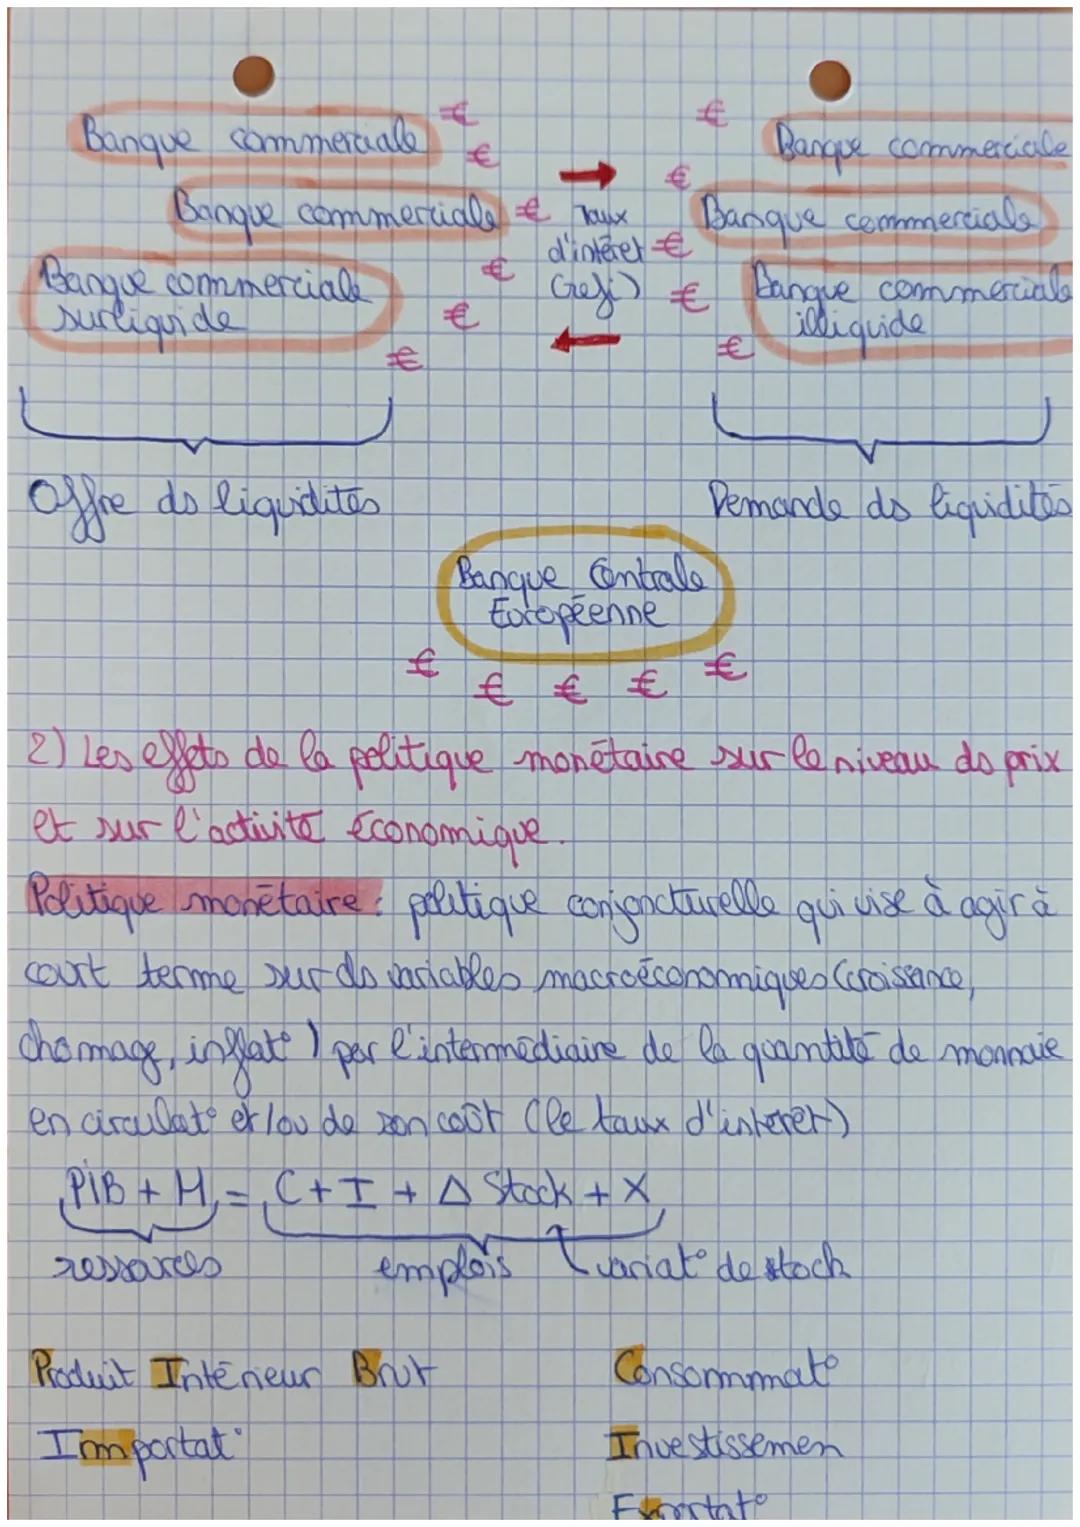 Banque commerciale € € Banque commerciale
€ €
Banque commerciale € Taux Banque commerciale
d'intéret €
Banque commerciale € (refi) € Banque commerciale
surliquide € illiquide
€ €
Offre ds liquidités Demande ds liquidités
Banque Centrale
Européenne
€ € € € €
2) Les effets de la politique monétaire sur le niveau ds prix
et sur l'activité économique.
Politique monétaire : politique conjoncturelle qui vise à agir à
court terme sur ds variables macroéconomiques (croissance,
chomage, inflat°) par l'intermédiaire de la quantité de monnaie
en circulat° et/ou de son coût (le taux d'interêt)
PIB + M = C + I + Δ Stock + X
ressources emplois variat° de stock
Produit Intérieur Brut Consommat°
Importat° Investissemen
Exportat°